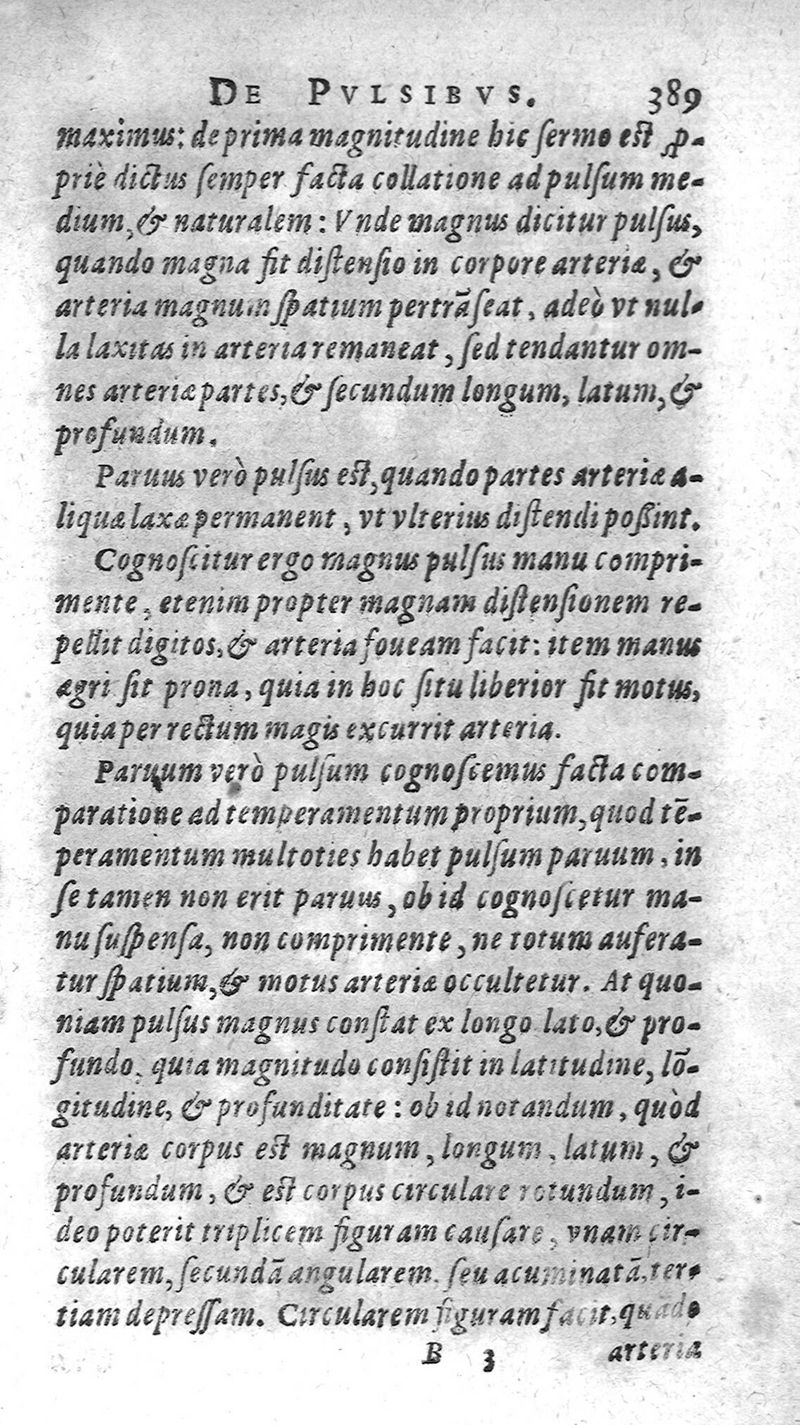 DE PVLSIBVS. 389
maximus: de prima magnitudine hic ſermo eſt ꝓ-
priè dictus ſemper facta collatione ad pulſum me-
dium, & naturalem: Vnde magnus dicitur pulſus,
quando magna fit diſtenſio in corpore arteriæ, &
arteria magnum ſpatium pertrāſeat, adeò vt nul-
la laxitas in arteria remaneat, ſed tendantur om-
nes arteriæ partes, & ſecundum longum, latum, &
profundum.
Paruus verò pulſus eſt, quando partes arteriæ a-
liquæ laxæ permanent, vt vlterius diſtendi poßint.
Cognoſcitur ergo magnus pulſus manu compri-
mente, etenim propter magnam diſtenſionem re-
pellit digitos, & arteria foueam facit: item manus
ægri ſit prona, quia in hoc ſitu liberior fit motus,
quia per rectum magis excurrit arteria.
Paruum verò pulſum cognoſcemus facta com-
paratione ad temperamentum proprium, quod tē-
peramentum multoties habet pulſum paruum, in
ſe tamen non erit paruus, ob id cognoſcetur ma-
nu ſuſpenſa, non comprimente, ne totum aufera-
tur ſpatium, & motus arteriæ occultetur. At quo-
niam pulſus magnus conſtat ex longo lato, & pro-
fundo, quia magnitudo conſiſtit in latitudine, lō-
gitudine, & profunditate: ob id notandum, quòd
arteriæ corpus eſt magnum, longum, latum, &
profundum, & eſt corpus circulare rotundum, i-
deo poterit triplicem figuram cauſare, vnam cir-
cularem, ſecundā angularem, ſeu acuminatā, ter-
tiam depreſſam. Circularem figuram facit, quādo
B 3 arteria